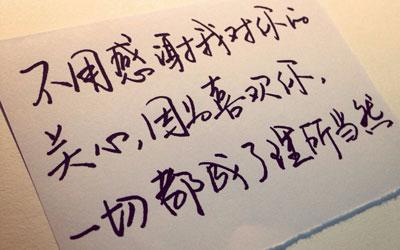 不用感谢我对你的
关心,因为喜欢你,
一切都成了理所当然